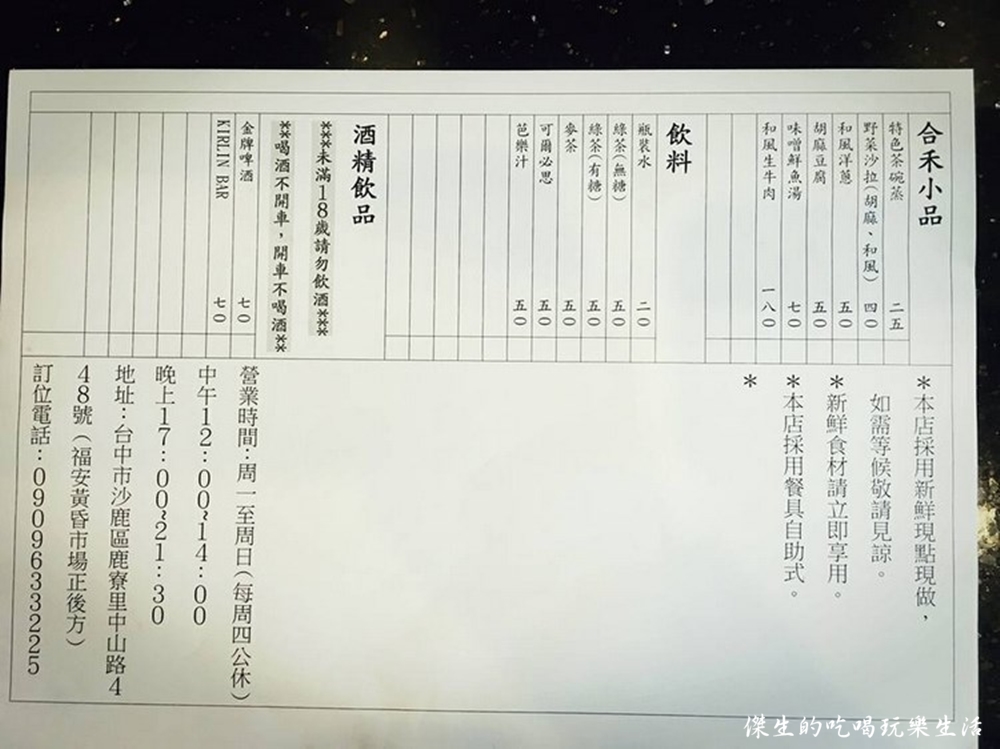 合禾小品
特色茶碗蒸 二五
野菜沙拉(胡麻、和風) 四〇
和風洋蔥 五〇
胡麻豆腐 五〇
味噌鮮魚湯 七〇
和風生牛肉 一八〇
飲料
瓶裝水 二〇
綠茶(無糖) 五〇
綠茶(有糖) 五〇
麥茶 五〇
可爾必思 五〇
芭樂汁 五〇
酒精飲品
***未滿18歲請勿飲酒***
**喝酒不開車,開車不喝酒**
金牌啤酒 七〇
KIRLIN BAR 七〇
*本店採用新鮮現點現做,
如需等候敬請見諒。
*新鮮食材請立即享用。
*本店採用餐具自助式。
*
營業時間:周一至周日(每周四公休)
中午12:00~14:00
晚上17:00~21:30
地址:台中市沙鹿區鹿寮里中山路4
48號(福安黃昏市場正後方)
訂位電話:0909633225
傑生的吃喝玩樂生活